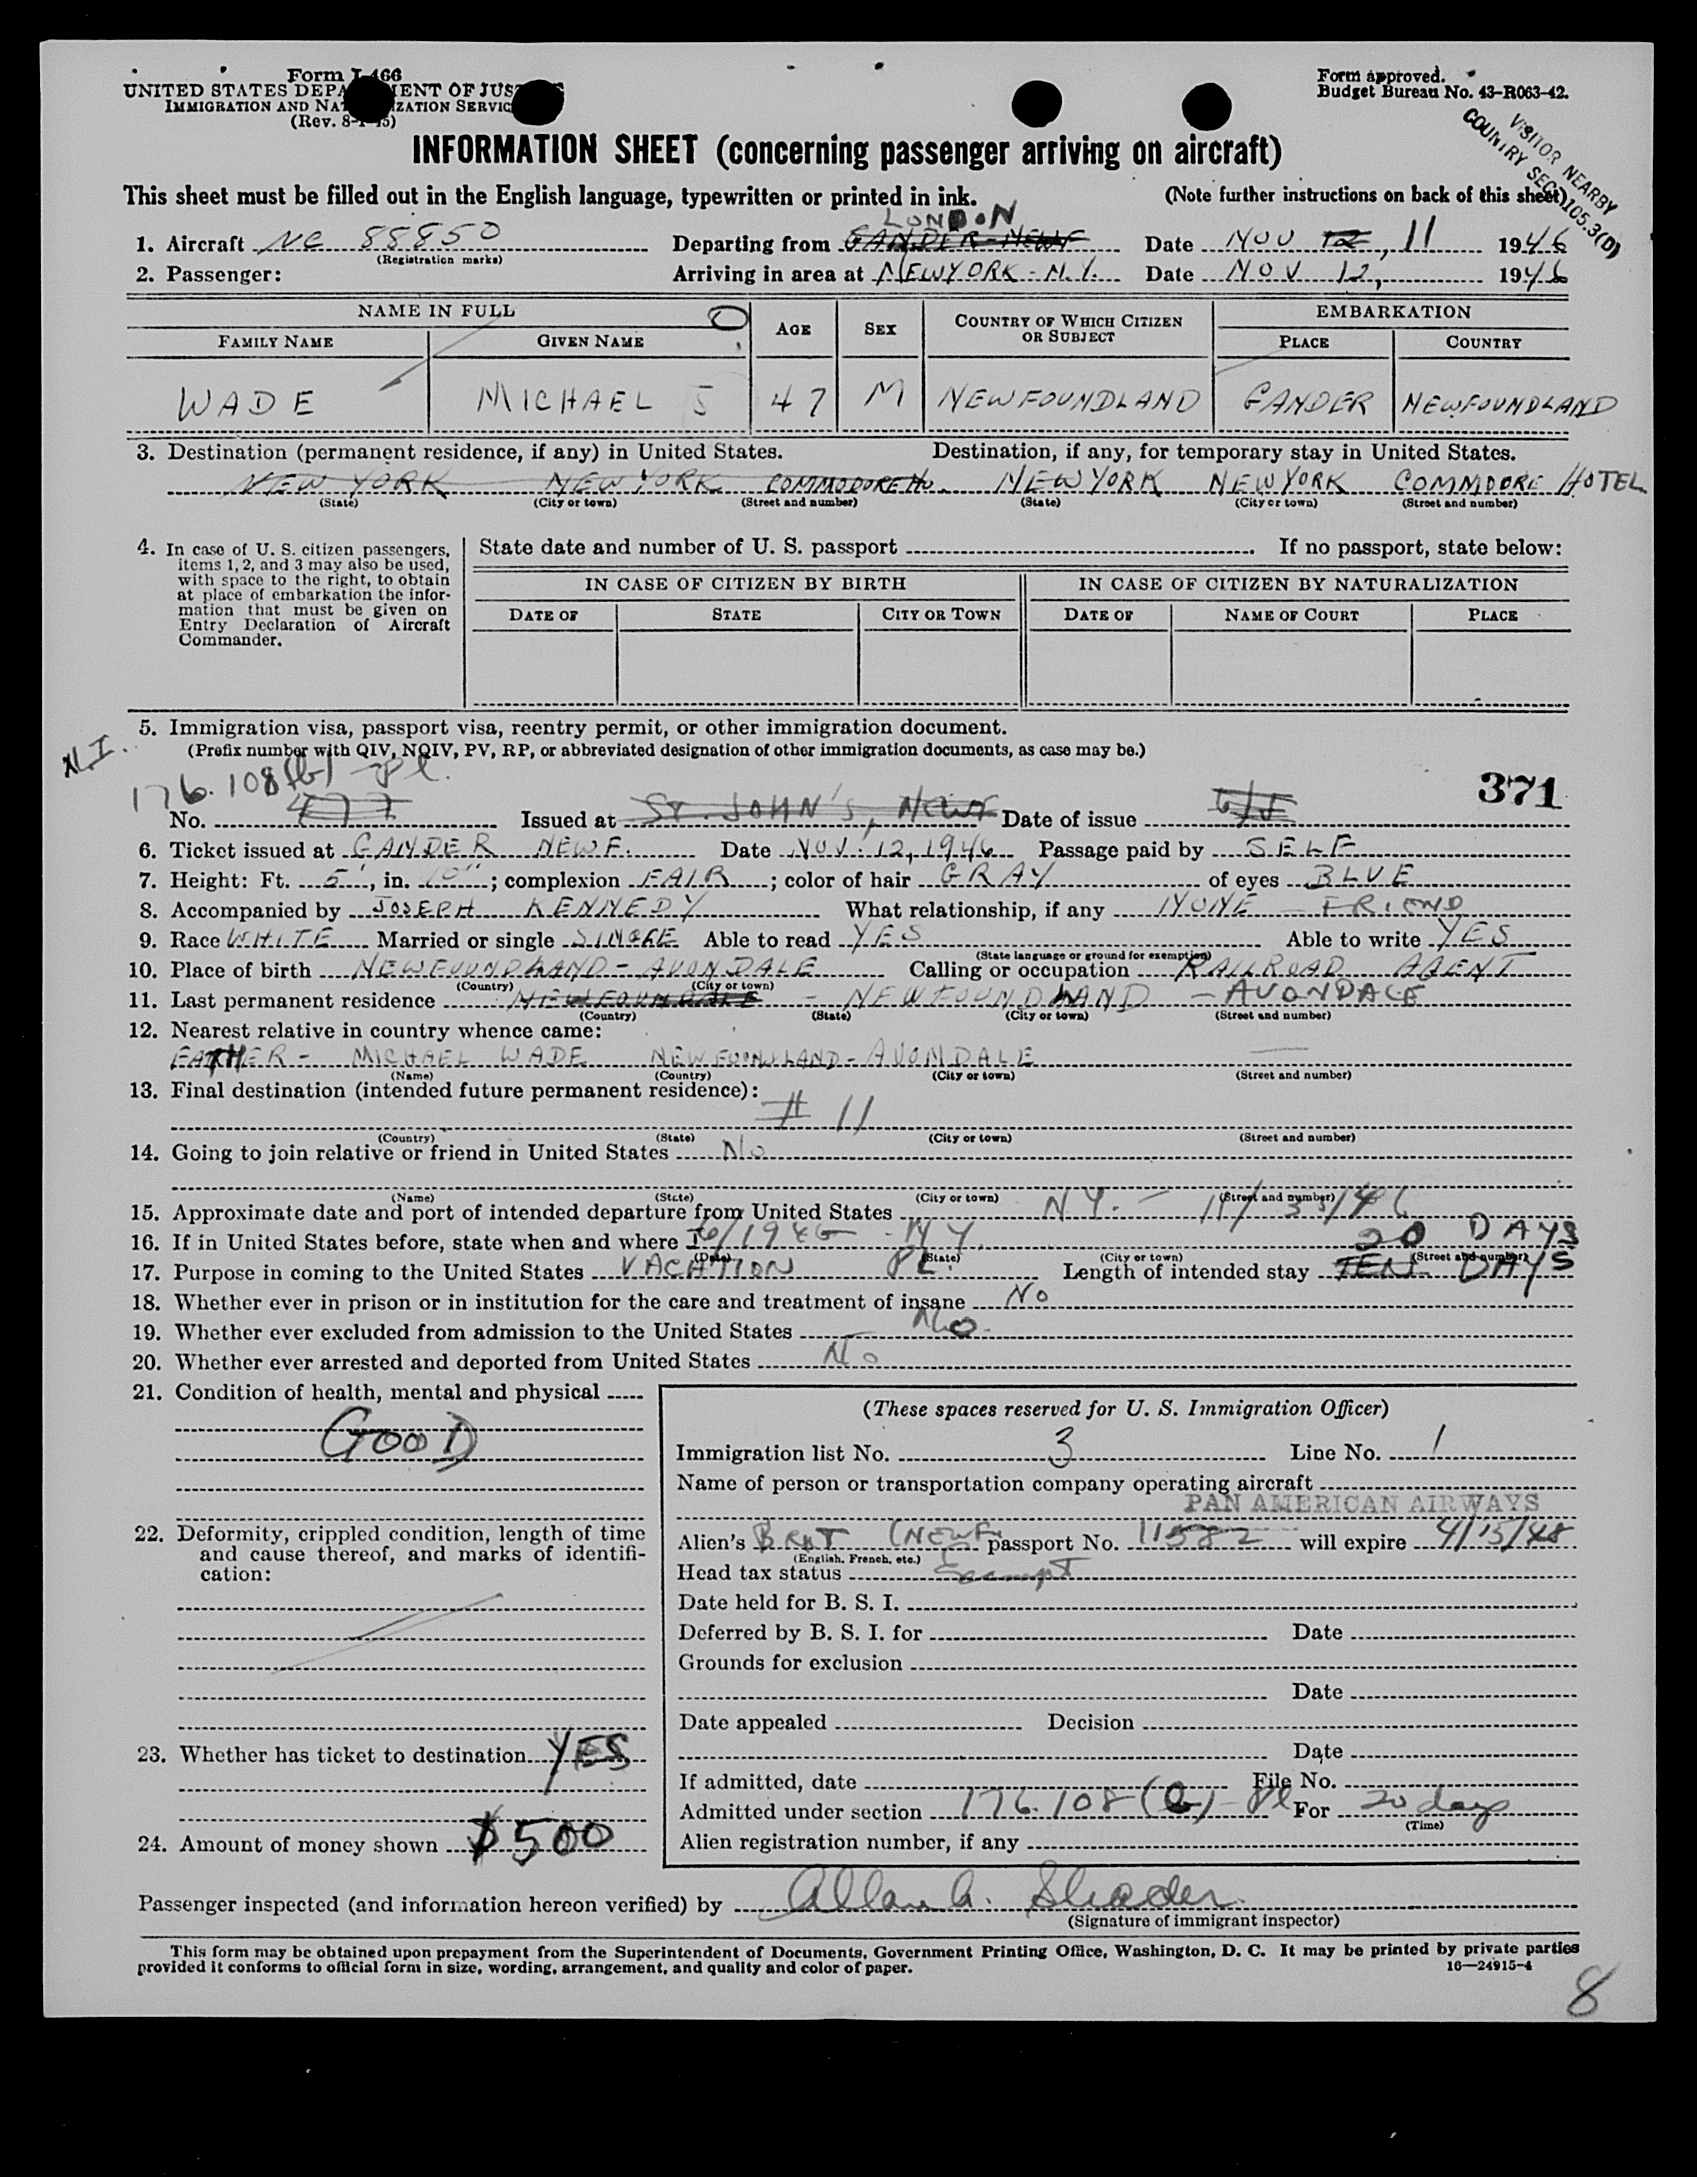 Form I-466
UNITED STATES DEPA MENT OF JUS
IMMIGRATION AND NA IZATION SERVIC
(Rev. 8-1-45)
Form approved.
Budget Bureau No. 43-R063-42.
VISITOR NEARBY
COUNTRY SEC. 105.3(D)
INFORMATION SHEET (concerning passenger arriving on aircraft)
This sheet must be filled out in the English language, typewritten or printed in ink. (Note further instructions on back of this sheet)
LONDON
1. Aircraft NC 88850 Departing from GANDER-NEWF Date NOV 12, 11 1946
(Registration marks)
2. Passenger: Arriving in area at NEWYORK-N.Y. Date NOV 12, 1946
NAME IN FULL AGE SEX COUNTRY OF WHICH CITIZEN OR SUBJECT EMBARKATION
FAMILY NAME GIVEN NAME PLACE COUNTRY
WADE MICHAEL J 47 M NEWFOUNDLAND GANDER NEWFOUNDLAND
3. Destination (permanent residence, if any) in United States. Destination, if any, for temporary stay in United States.
NEW YORK NEW YORK COMMODORE Ho. NEW YORK NEW YORK COMMODORE HOTEL
(State) (City or town) (Street and number) (State) (City or town) (Street and number)
4. In case of U. S. citizen passengers, items 1, 2, and 3 may also be used, with space to the right, to obtain at place of embarkation the information that must be given on Entry Declaration of Aircraft Commander.
State date and number of U. S. passport If no passport, state below:
IN CASE OF CITIZEN BY BIRTH IN CASE OF CITIZEN BY NATURALIZATION
DATE OF STATE CITY OR TOWN DATE OF NAME OF COURT PLACE
5. Immigration visa, passport visa, reentry permit, or other immigration document.
N.I.
(Prefix number with QIV, NQIV, PV, RP, or abbreviated designation of other immigration documents, as case may be.)
176.108(b) Pl.
371
No. 477 Issued at ST. JOHN'S, NEWF Date of issue
6. Ticket issued at GANDER NEWF. Date NOV. 12, 1946 Passage paid by SELF
7. Height: Ft. 5', in. 10"; complexion FAIR; color of hair GRAY of eyes BLUE
8. Accompanied by JOSEPH KENNEDY What relationship, if any NONE - FRIEND
9. Race WHITE Married or single SINGLE Able to read YES Able to write YES
(State language or ground for exemption)
10. Place of birth NEWFOUNDLAND - AVONDALE Calling or occupation RAILROAD AGENT
(Country) (City or town)
11. Last permanent residence - NEWFOUNDLAND - AVONDALE
(Country) (State) (City or town) (Street and number)
12. Nearest relative in country whence came:
FATHER - MICHAEL WADE NEWFOUNDLAND - AVONDALE
(Name) (Country) (City or town) (Street and number)
13. Final destination (intended future permanent residence):
# 11
(Country) (State) (City or town) (Street and number)
14. Going to join relative or friend in United States No
(Name) (State) (City or town) (Street and number)
15. Approximate date and port of intended departure from United States N.Y. -
16. If in United States before, state when and where 6/1946 - NY. 20 DAYS
(Date) (State) (City or town) (Street and number)
17. Purpose in coming to the United States VACATION PL. Length of intended stay TEN DAYS
18. Whether ever in prison or in institution for the care and treatment of insane No
19. Whether ever excluded from admission to the United States No
20. Whether ever arrested and deported from United States No
21. Condition of health, mental and physical
GOOD
22. Deformity, crippled condition, length of time and cause thereof, and marks of identification:
23. Whether has ticket to destination YES
24. Amount of money shown $500
(These spaces reserved for U. S. Immigration Officer)
Immigration list No. 3 Line No. 1
Name of person or transportation company operating aircraft
PAN AMERICAN AIRWAYS
Alien's BRIT (NEWF) passport No. 11582 will expire 4/15/48
(English, French, etc.)
Head tax status Exempt
Date held for B. S. I.
Deferred by B. S. I. for Date
Grounds for exclusion
Date
Date appealed Decision
Date
If admitted, date File No.
Admitted under section 176.108(b) - Pl For 20 days
(Time)
Alien registration number, if any
Passenger inspected (and information hereon verified) by Allan A. Shader
(Signature of immigrant inspector)
This form may be obtained upon prepayment from the Superintendent of Documents, Government Printing Office, Washington, D. C. It may be printed by private parties
provided it conforms to official form in size, wording, arrangement, and quality and color of paper. 16—24915-4
8